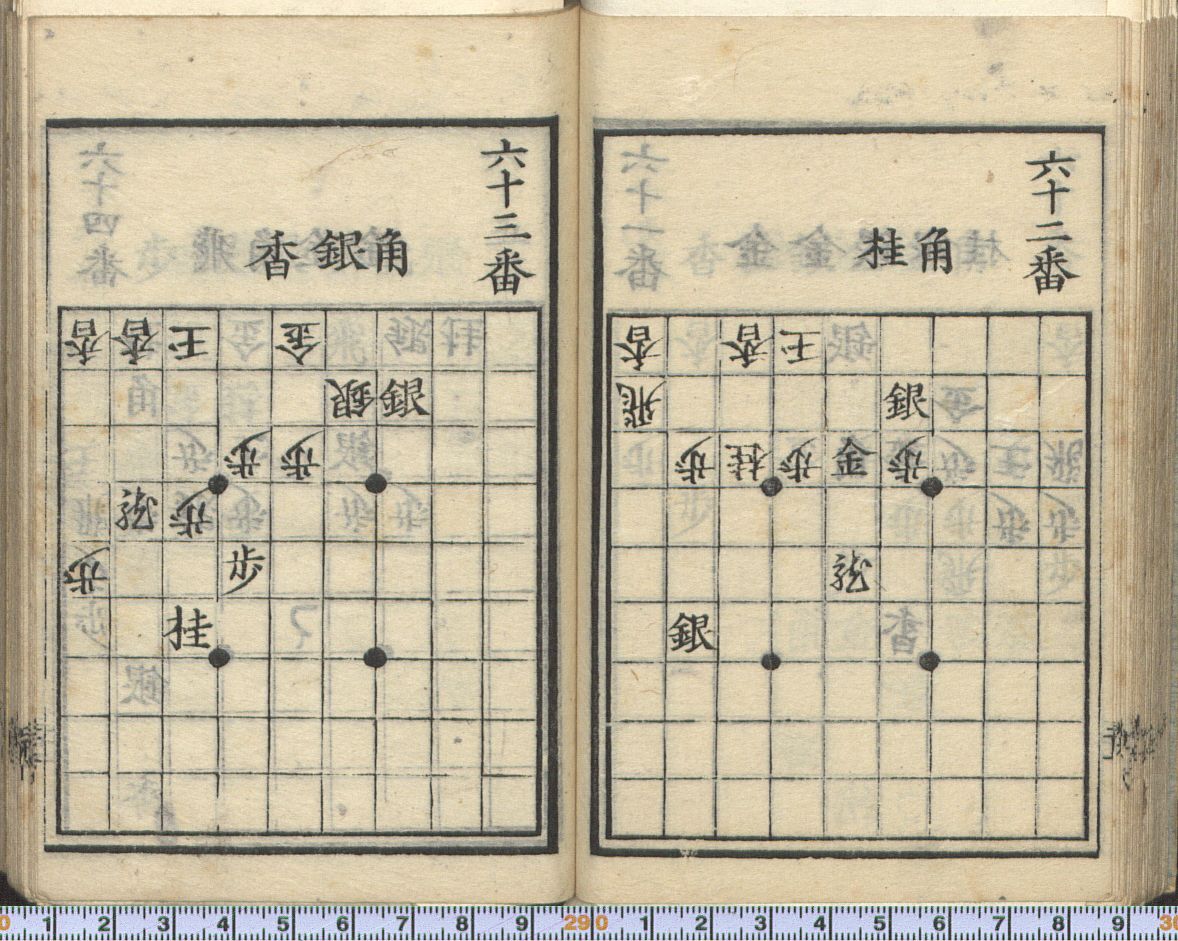 六十二番
角桂
玉香香
銀飛
歩金歩桂歩
龍
銀
六十三番
角銀香
金玉香香
銀銀
歩歩
歩龍
歩歩
桂
0 1 2 3 4 5 6 7 8 9 290 1 2 3 4 5 6 7 8 9 30